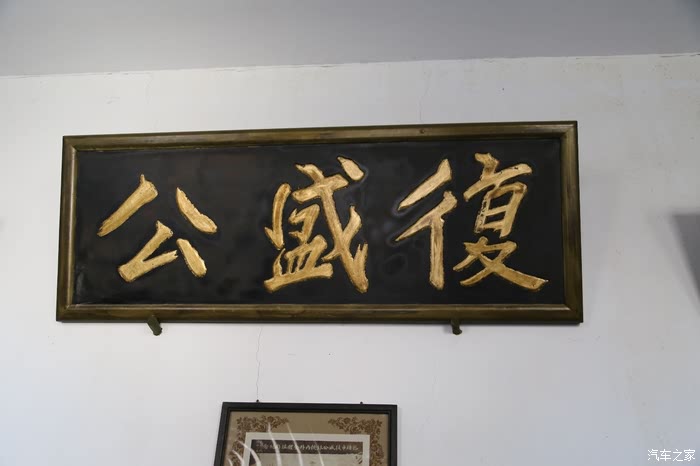 復盛公
汽车之家